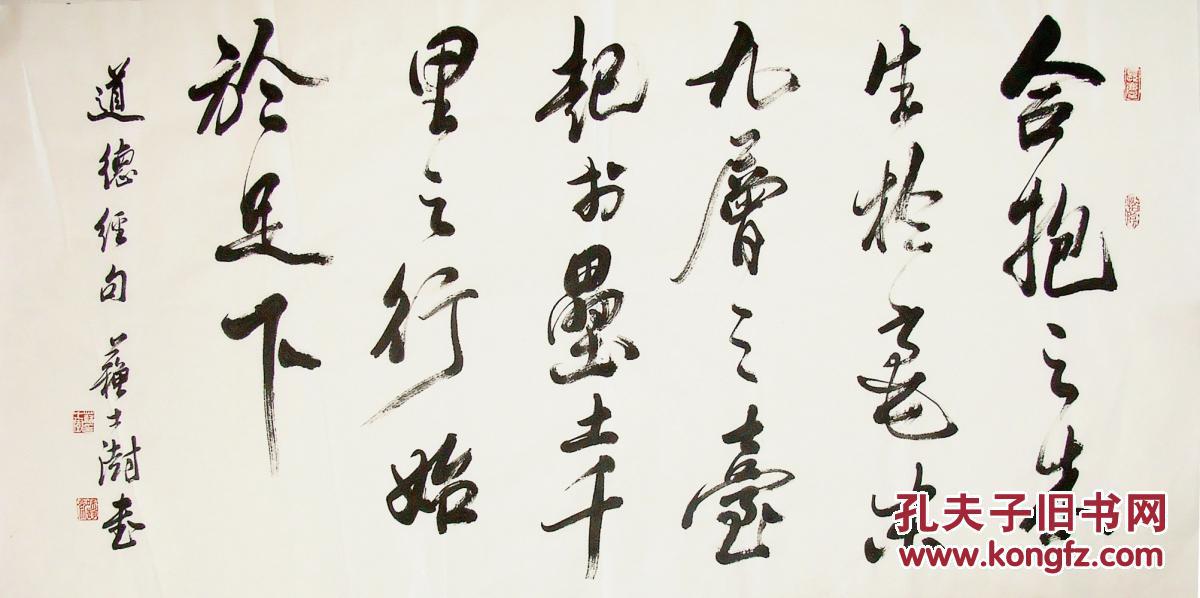 合抱之
生於毫末
九層之臺
起於壘土千
里之行始
於足下
道德經句 蘇士澍書
孔夫子旧书网
www.kongfz.com